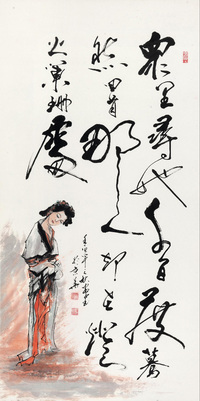 眾里尋他千百度驀
然回首那人却在燈
火闌珊處